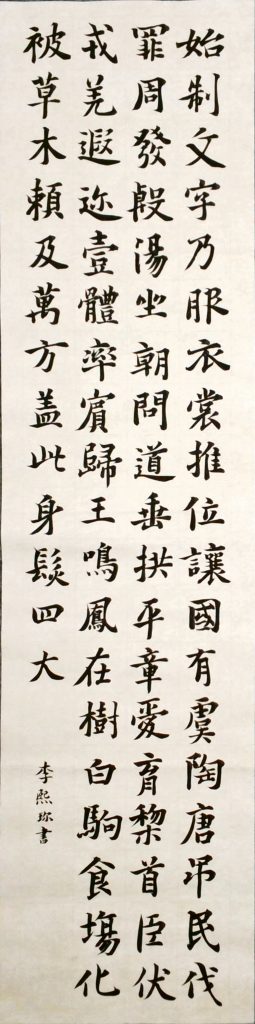 始制文字乃服衣裳推位讓國有虞陶唐吊民伐
罪周發殷湯坐朝問道垂拱平章愛育黎首臣伏
戎羌遐迩壹體率賓歸王鳴鳳在樹白駒食場化
被草木賴及萬方蓋此身髮四大
李熙珎書